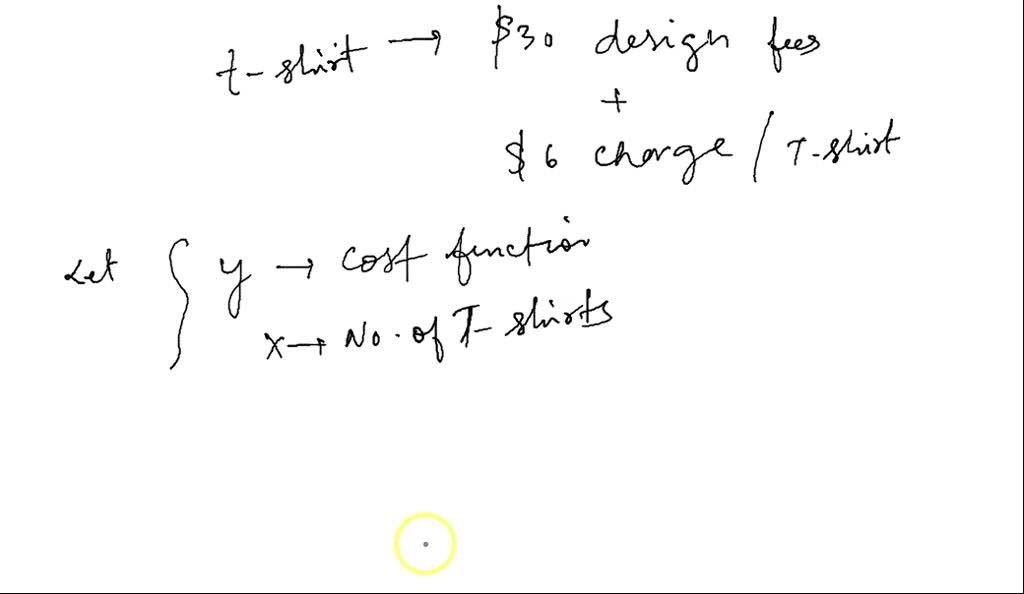 t-shirt → $30 design fees
+
$6 charge / T-shirt
Let { y → cost function
x → No. of T-shirts